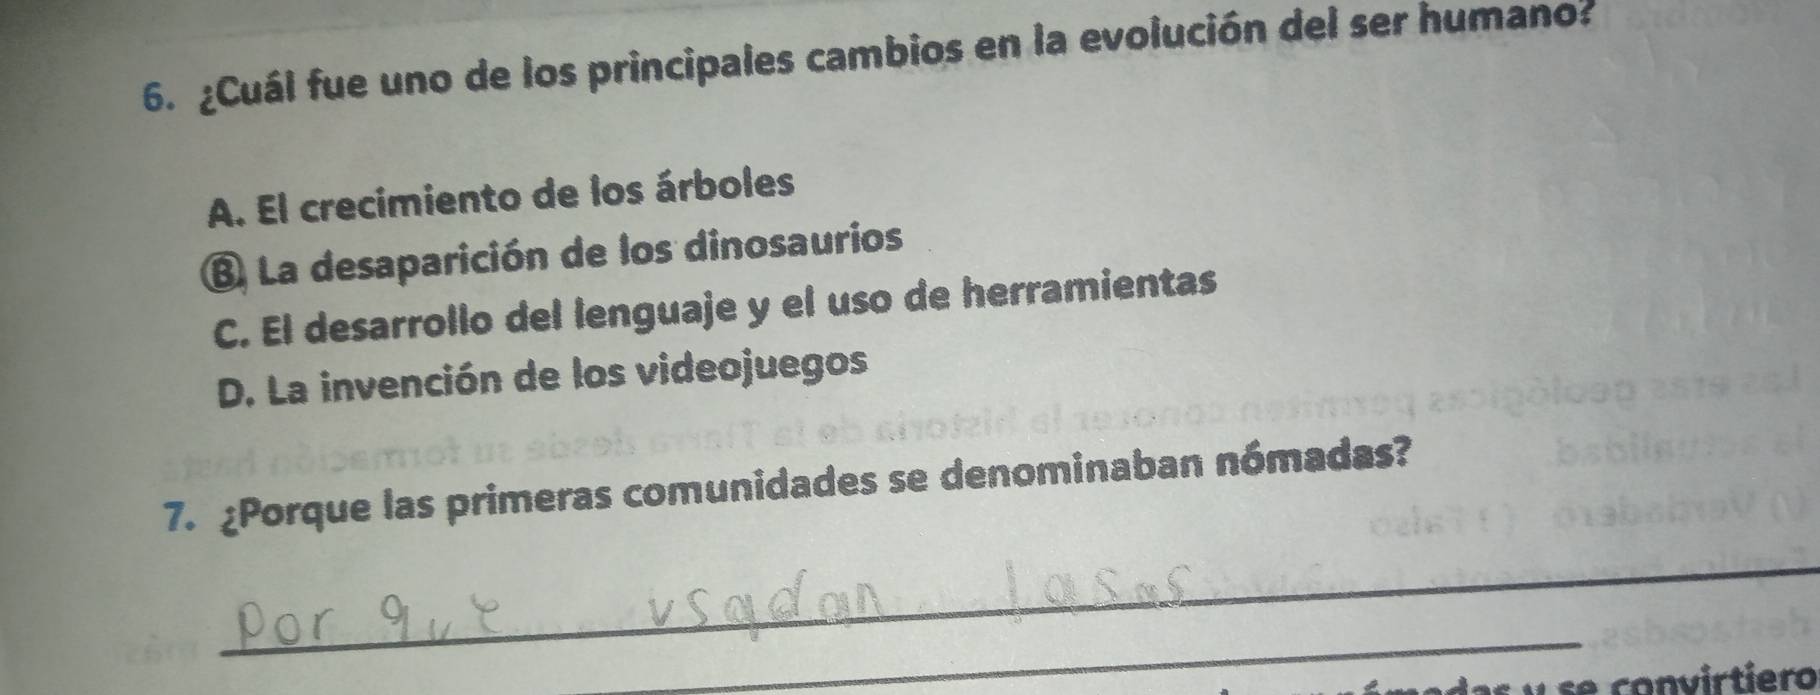 6. ¿Cuál fue uno de los principales cambios en la evolución del ser humano?
A. El crecimiento de los árboles
B. La desaparición de los dinosaurios
C. El desarrollo del lenguaje y el uso de herramientas
D. La invención de los videojuegos
7. ¿Porque las primeras comunidades se denominaban nómadas?
por que usadan lasas
y se convirtiero